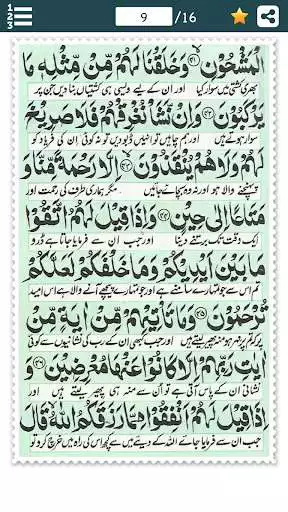 1
2
3
9 /16
الْمَشْحُوْنِ ﴿۴۱﴾ وَخَلَقْنَا لَهُمْ مِّنْ مِّثْلِهٖ مَا
بھری کشتی میں سوار کیا اور ان کے لیے ویسی ہی کشتیاں بنا دیں جن پر
يَرْكَبُوْنَ ﴿۴۲﴾ وَاِنْ نَّشَاْ نُغْرِقْهُمْ فَلَا صَرِيْخَ
سوار ہوتے ہیں اور ہم چاہیں تو انہیں ڈبو دیں تو نہ کوئی ان کی فریاد کو
لَهُمْ وَلَا هُمْ يُنْقَذُوْنَ ﴿۴۳﴾ اِلَّا رَحْمَةً مِّنَّا وَ
پہنچنے والا ہو اور نہ وہ بچائے جائیں مگر ہماری طرف کی رحمت اور
مَتَاعًا اِلٰى حِيْنٍ ﴿۴۴﴾ وَاِذَا قِيْلَ لَهُمُ اتَّقُوْا
ایک وقت تک برتنے دینا اور جب ان سے فرمایا جاتا ہے ڈرو
مَا بَيْنَ اَيْدِيْكُمْ وَمَا خَلْفَكُمْ لَعَلَّكُمْ
تم اس سے جو تمہارے سامنے ہے اور جو تمہارے پیچھے آنے والا ہے اس امید
تُرْحَمُوْنَ ﴿۴۵﴾ وَمَا تَاْتِيْهِمْ مِّنْ اٰيَةٍ مِّنْ
پر کہ تم پر مہر ہو منہ پھیر لیتے ہیں اور جب کبھی ان کے رب کی نشانیوں سے کوئی
اٰيٰتِ رَبِّهِمْ اِلَّا كَانُوْا عَنْهَا مُعْرِضِيْنَ ﴿۴۶﴾ وَ
نشانی ان کے پاس آتی ہے تو اس سے منہ ہی پھیر لیتے ہیں اور
اِذَا قِيْلَ لَهُمْ اَنْفِقُوْا مِمَّا رَزَقَكُمُ اللّٰهُ قَالَ
جب ان سے فرمایا جائے اللہ کے دیئے میں سے کچھ اس کی راہ میں خرچ کرو تو